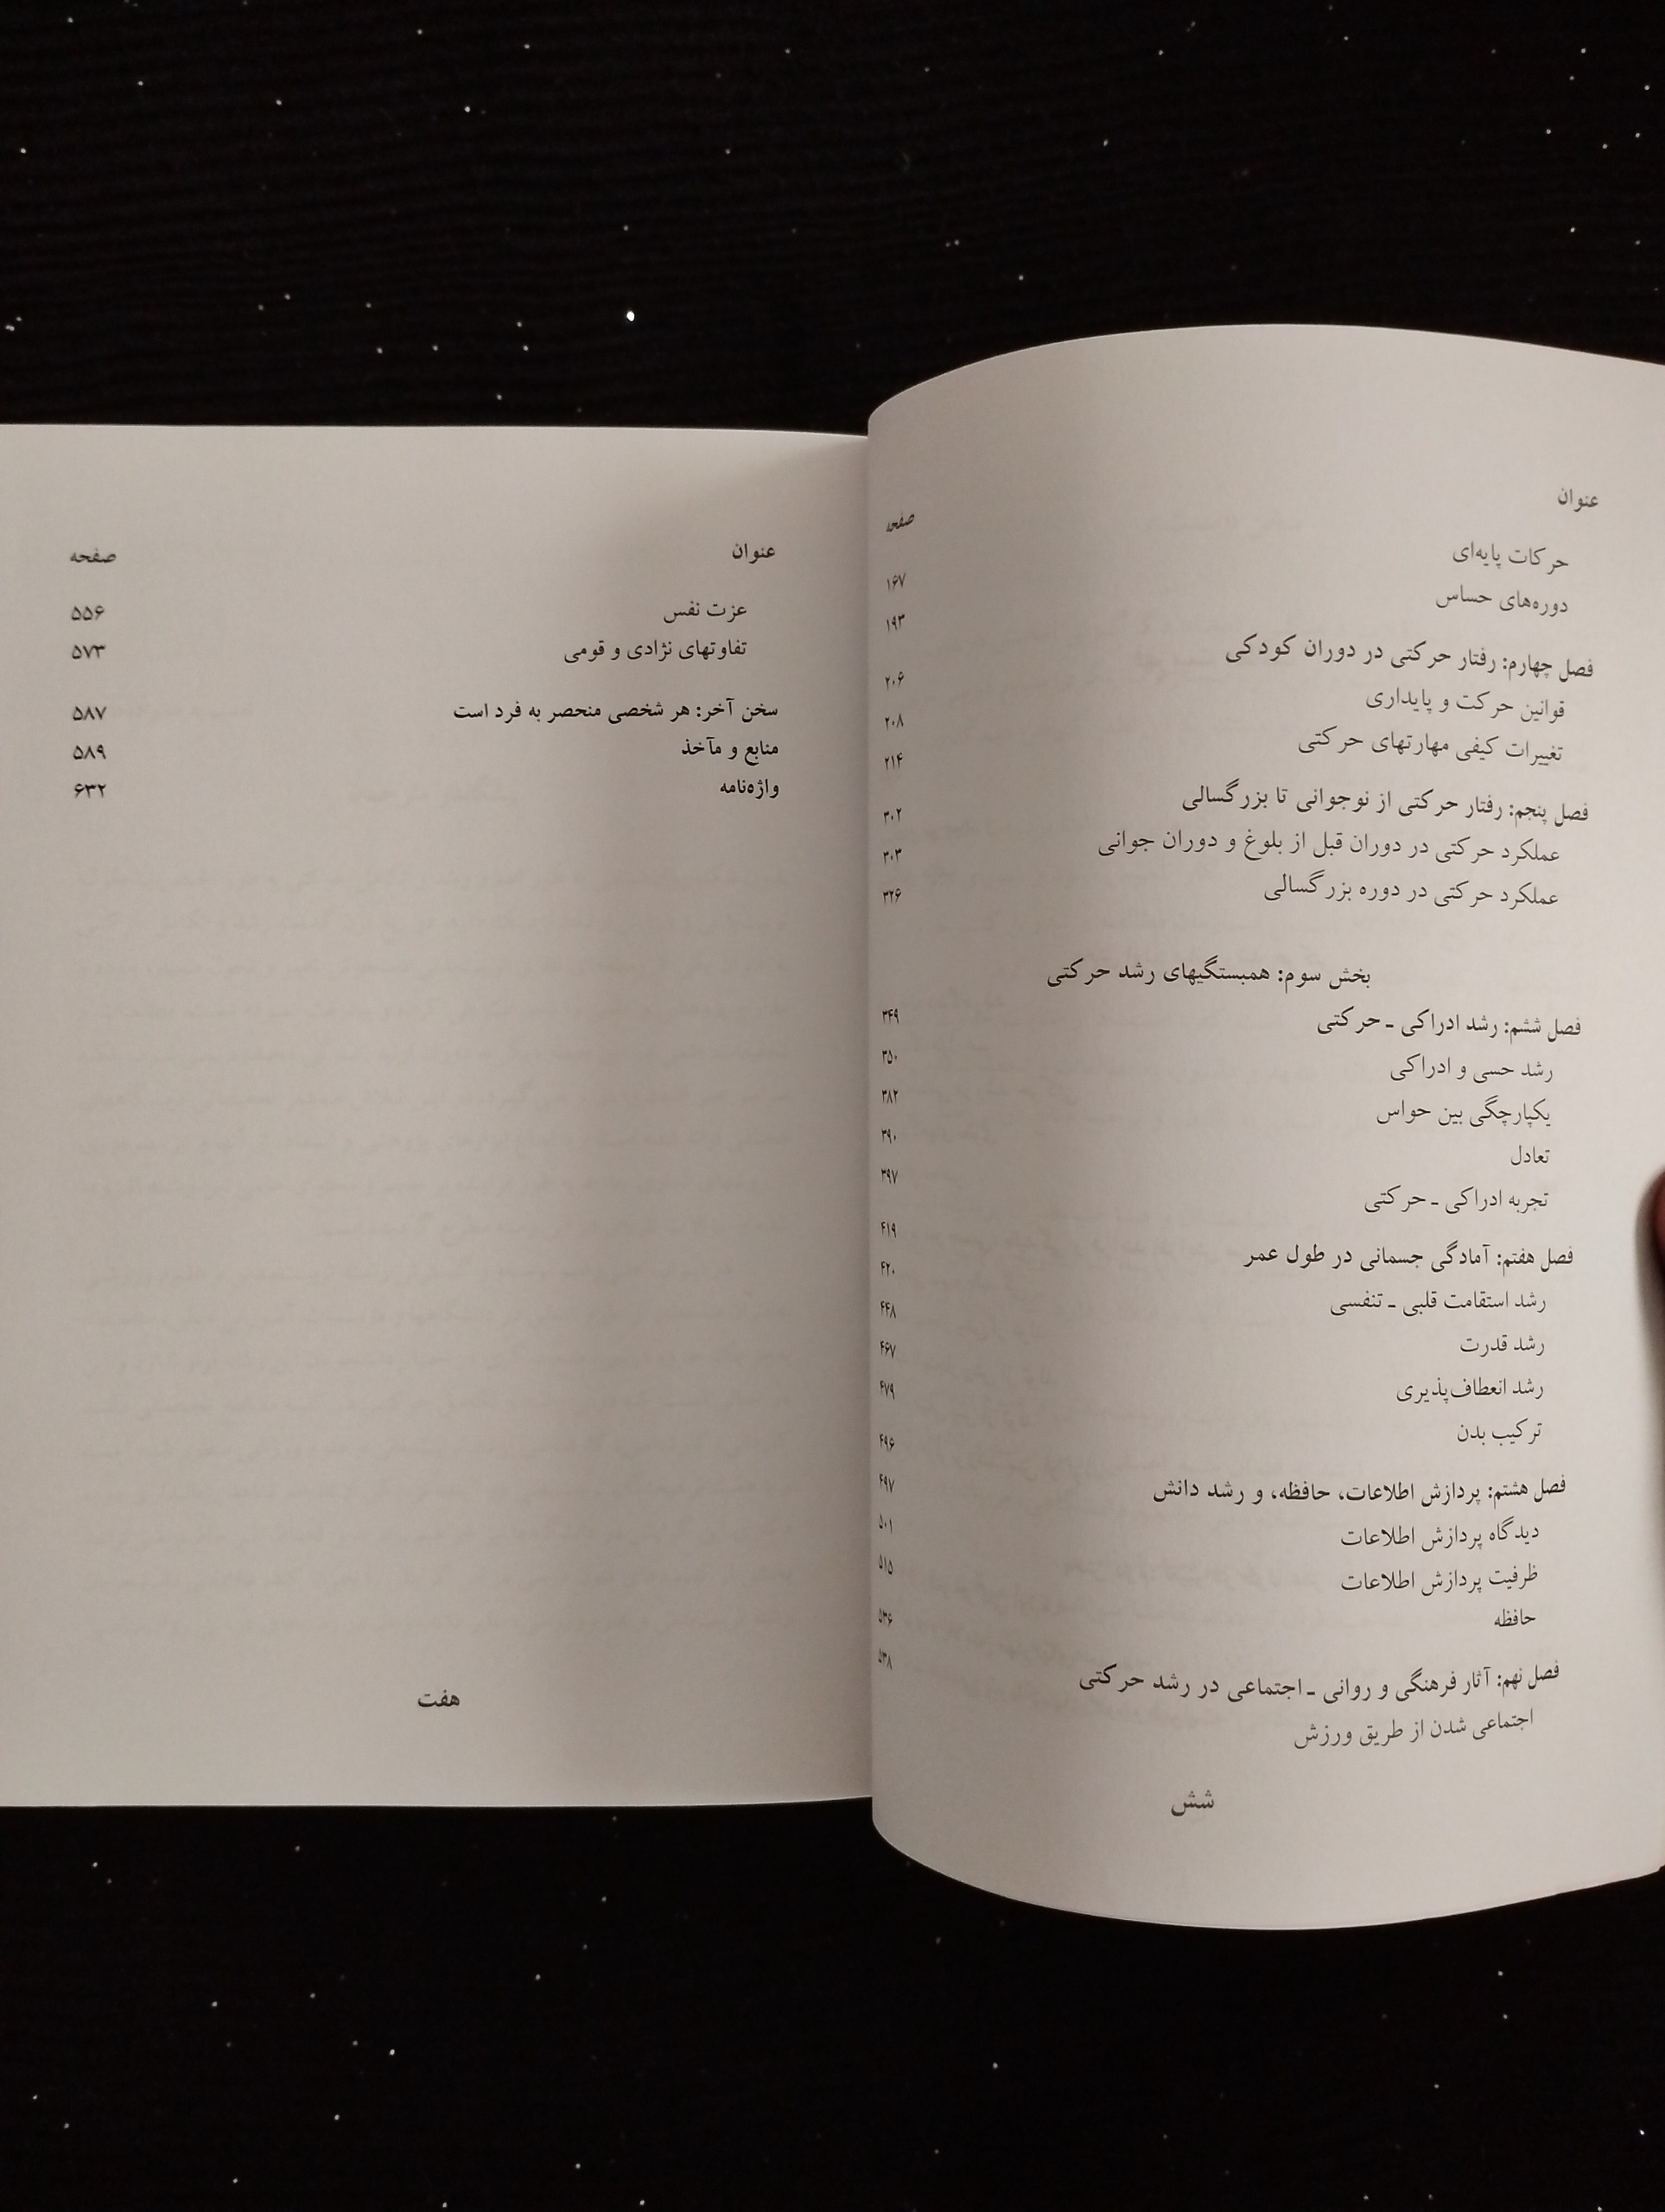 عنوان صفحه
حرکات پایه‌ای ۱۶۷
دوره‌های حساس ۱۹۳
فصل چهارم: رفتار حرکتی در دوران کودکی ۲۰۶
قوانین حرکت و پایداری ۲۰۸
تغییرات کیفی مهارتهای حرکتی ۲۱۴
فصل پنجم: رفتار حرکتی از نوجوانی تا بزرگسالی ۳۰۲
عملکرد حرکتی در دوران قبل از بلوغ و دوران جوانی ۳۰۳
عملکرد حرکتی در دوره بزرگسالی ۳۲۶
بخش سوم: همبستگیهای رشد حرکتی
فصل ششم: رشد ادراکی ـ حرکتی ۳۴۹
رشد حسی و ادراکی ۳۵۰
یکپارچگی بین حواس ۳۸۲
تعادل ۳۹۰
تجربه ادراکی ـ حرکتی ۳۹۷
فصل هفتم: آمادگی جسمانی در طول عمر ۴۱۹
رشد استقامت قلبی ـ تنفسی ۴۲۰
رشد قدرت ۴۴۸
رشد انعطاف‌پذیری ۴۶۷
ترکیب بدن ۴۷۹
فصل هشتم: پردازش اطلاعات، حافظه، و رشد دانش ۴۹۶
دیدگاه پردازش اطلاعات ۴۹۷
ظرفیت پردازش اطلاعات ۵۰۱
حافظه ۵۱۵
فصل نهم: آثار فرهنگی و روانی ـ اجتماعی در رشد حرکتی ۵۳۶
اجتماعی شدن از طریق ورزش ۵۳۸
شش
عنوان صفحه
عزت نفس ۵۵۶
تفاوتهای نژادی و قومی ۵۷۳
سخن آخر: هر شخصی منحصر به فرد است ۵۸۷
منابع و مآخذ ۵۸۹
واژه‌نامه ۶۳۲
هفت